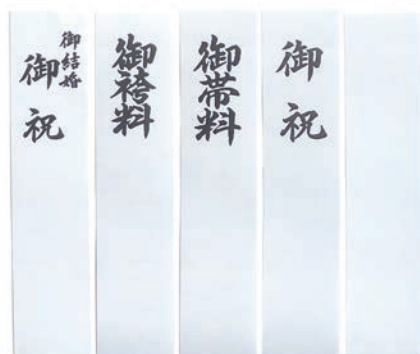 御結婚
御祝
御袴料
御帯料
御祝